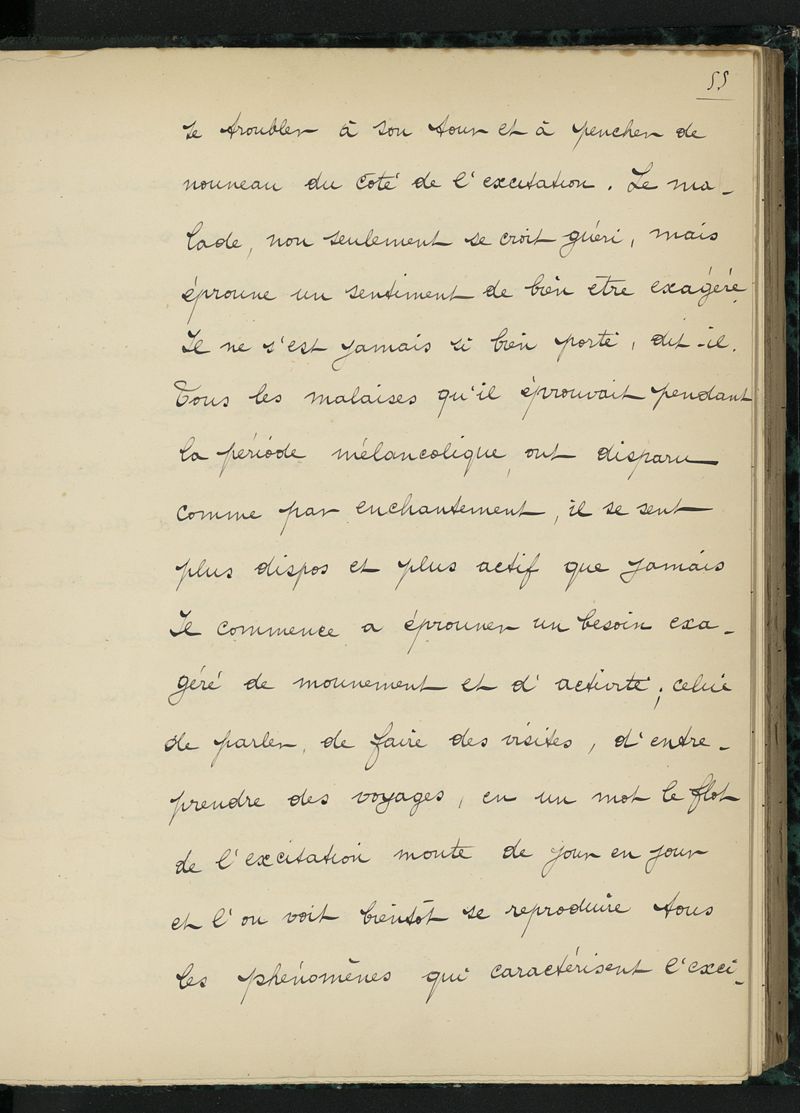 55
se troubler à son tour et à pencher de
nouveau du coté de l'excitation. Le ma-
lade, non seulement se croit guéri, mais
éprouve un sentiment de bien etre exagéré
Il ne s'est jamais si bien porté, dit-il.
Tous les malaises qu'il éprouvait pendant
la période mélancolique, ont disparu
comme par enchantement, il se sent
plus dispos et plus actif que jamais
Il commence a éprouver un besoin exa-
géré de mouvement et d'activité; celui
de parler, de faire des visites, d'entre-
prendre des voyages, en un mot le flot
de l'excitation monte de jour en jour
et l'on voit bientôt se reproduire tous
les phénomènes qui caractérisent l'exci-